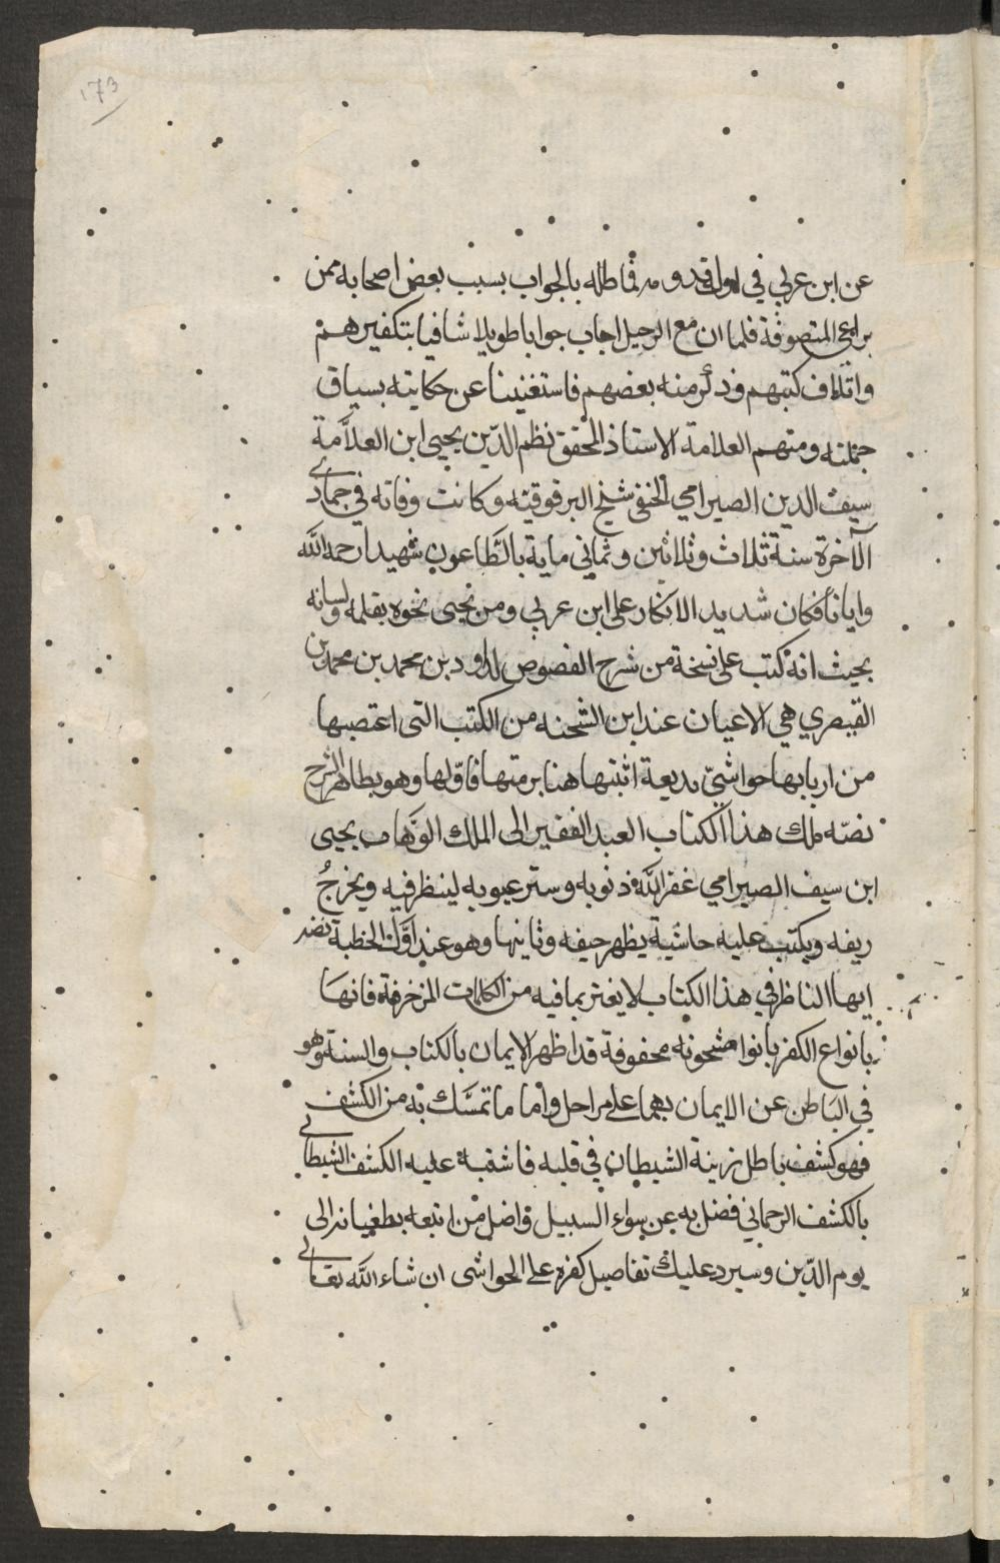 173
عن ابن عربي في اول قدومه فماطله بالجواب بسبب بعض اصحابه ممن
يراعي المتصوفة فلما ان مع الرحيل اجاب جوابا طويلا شافيا بتكفيرهم
واتلاف كتبهم وذكر منه بعضهم فاستغنينا عن حكايته بسياق
جملته ومنهم العلامة الاستاذ المحقق نظم الدّين يحيى ابن العلاّمة
سيف الدين الصيرامي الحنفي شيخ البرقوقية وكانت وفاته في جمادى
الآخرة سنة ثلاث وثلاثين وثماني ماية بالطَّاعون شهيدا رحمه الله
وايانا فكان شديد الانكار على ابن عربي ومن نحى نحوه بقلمه ولسانه
بحيث انه كتب على نسخة من شرح الفصوص لداود بن محمد بن محمد بن
القيصري هي الاعيان عند ابن الشحنه من الكتب التي اغتصبها
من اربابها حواشيَ بديعة اثبتها هنا برمتها فاوّلها وهو بظاهر الشرح
نصّه ملك هذا الكتاب العبد الفقير الى الملك الوَهاب يحيى
ابن سيف الصيرامي غفر الله ذنوبه وستر عيوبه لينظر فيه ويخرجُ
ريفه ويكتب عليه حاشية يظهر حيفه وثانيها وهو عند اوَّل الخطبة نصه
ايها الناظر في هذا الكتاب لا يغتر بما فيه من الكلمات المزخرفة فانهَا
بانواع الكفر بانواع مشحونه محفوفة قد اظهر الايمان بالكتاب والسنة وهو
في البَاطن عن الايمان بهما على مراحل واما ما تمسَّك به من الكشف
فهو كشف باطل زينة الشيطان في قلبه فاشتبه عليه الكشف الشيطاني
بالكشف الرحماني فضل به عن سواء السبيل واضل من اتبعه بطغيانه الى
يوم الدّين وسيرد عليك تفاصيل كفره على الحواشى ان شاء الله تعالى